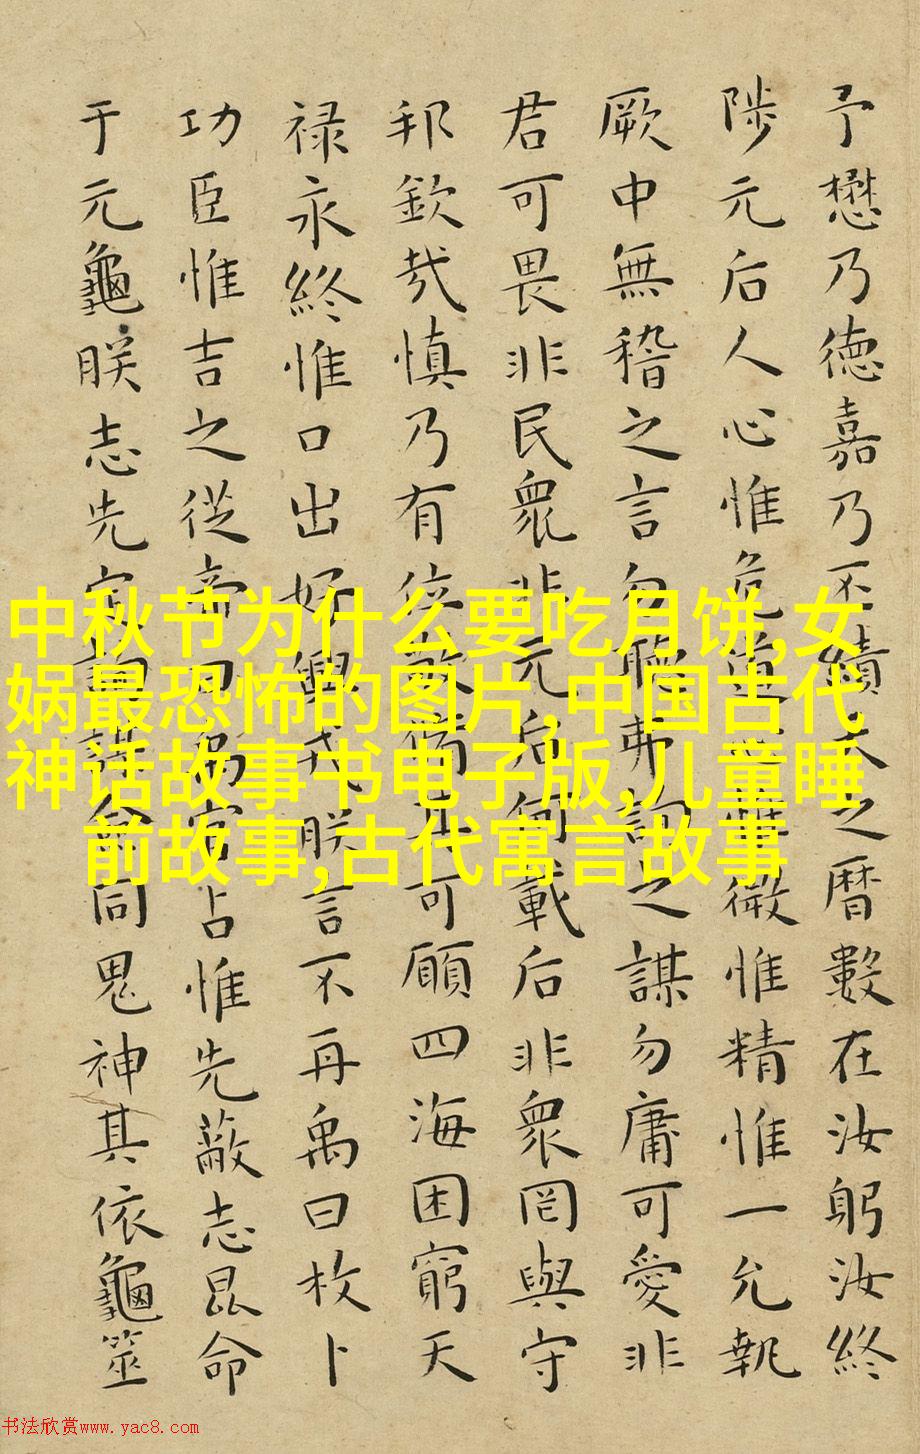 予懋乃德嘉乃丕績天之曆數在汝躬汝終
陟元后人心惟危道心惟微惟精惟一允執
厥中無稽之言勿聽弗詢之謀勿庸可愛非
君可畏非民衆非元后何戴后非衆罔與守
邦欽哉慎乃有位敬脩其可願四海困窮天
禄永終惟口出好興戎朕言不再禹曰枚卜
功臣惟吉之從帝曰禹官占惟先蔽志昆命
于元龜朕志先定詢謀僉同鬼神其依龜筮
中秋节为什么要吃月饼,女
娲最恐怖的图片,中国古代
神话故事书电子版,儿童睡
前故事,古代寓言故事
书法欣赏www.yac8.com